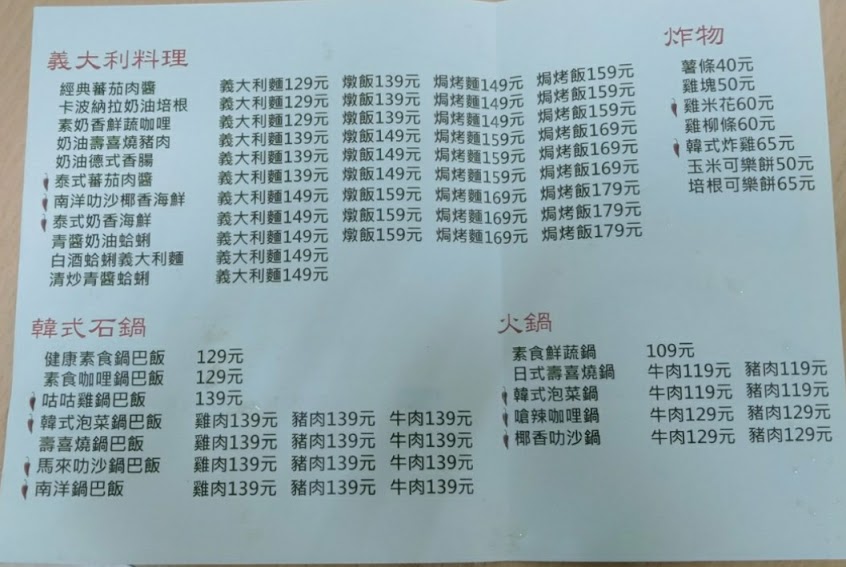 義大利料理
經典蕃茄肉醬 義大利麵129元 燉飯139元 焗烤麵149元 焗烤飯159元
卡波納拉奶油培根 義大利麵129元 燉飯139元 焗烤麵149元 焗烤飯159元
素奶香鮮蔬咖哩 義大利麵129元 燉飯139元 焗烤麵149元 焗烤飯159元
奶油壽喜燒豬肉 義大利麵139元 燉飯149元 焗烤麵159元 焗烤飯169元
奶油德式香腸 義大利麵139元 燉飯149元 焗烤麵159元 焗烤飯169元
泰式蕃茄肉醬 義大利麵139元 燉飯149元 焗烤麵159元 焗烤飯169元
南洋叻沙椰香海鮮 義大利麵149元 燉飯159元 焗烤麵169元 焗烤飯179元
泰式奶香海鮮 義大利麵149元 燉飯159元 焗烤麵169元 焗烤飯179元
青醬奶油蛤蜊 義大利麵149元 燉飯159元 焗烤麵169元 焗烤飯179元
白酒蛤蜊義大利麵 義大利麵149元
清炒青醬蛤蜊 義大利麵149元
炸物
薯條40元
雞塊50元
雞米花60元
雞柳條60元
韓式炸雞65元
玉米可樂餅50元
培根可樂餅65元
韓式石鍋
健康素食鍋巴飯 129元
素食咖哩鍋巴飯 129元
咕咕雞鍋巴飯 139元
韓式泡菜鍋巴飯 雞肉139元 豬肉139元 牛肉139元
壽喜燒鍋巴飯 雞肉139元 豬肉139元 牛肉139元
馬來叻沙鍋巴飯 雞肉139元 豬肉139元 牛肉139元
南洋鍋巴飯 雞肉139元 豬肉139元 牛肉139元
火鍋
素食鮮蔬鍋 109元
日式壽喜燒鍋 牛肉119元 豬肉119元
韓式泡菜鍋 牛肉119元 豬肉119元
嗆辣咖哩鍋 牛肉129元 豬肉129元
椰香叻沙鍋 牛肉129元 豬肉129元